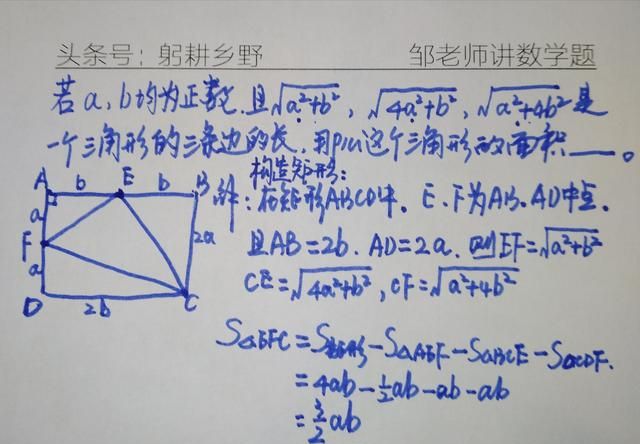 头条号：躬耕乡野 邹老师讲数学题
若a,b均为正数,且√(a²+b²), √(4a²+b²), √(a²+4b²)是
一个三角形的三条边的长,那么这个三角形的面积____。
构造矩形:
解:在矩形ABCD中. E、F为AB、AD中点.
且AB=2b. AD=2a. 则EF=√(a²+b²)
CE=√(4a²+b²), CF=√(a²+4b²)
S△EFC=S矩形-S△AEF-S△BCE-S△CDF.
=4ab-½ab-ab-ab
=3/2 ab
A b E b B
a
F 2a
a
D 2b C